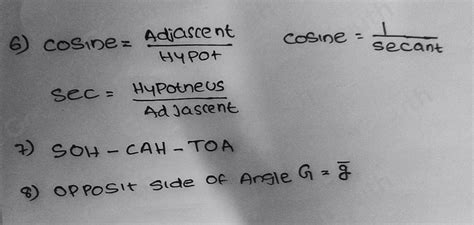 6) cosine = Adjascent / Hypot
cosine = 1 / secant
sec = Hypotneus / Adjascent
7) SOH - CAH - TOA
8) opposit side of Angle G = g̅